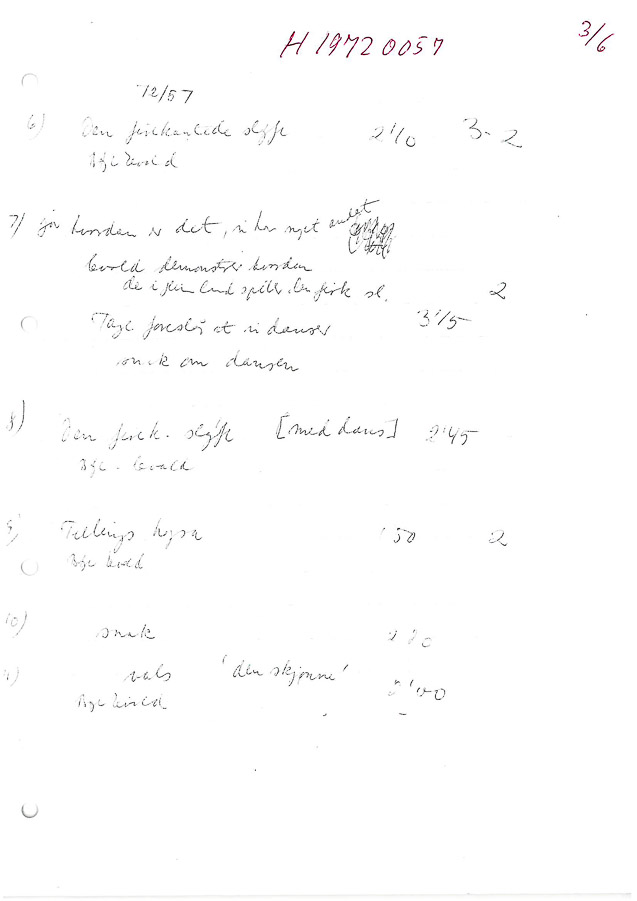 H 1972 0057
3/6
72/57
6) Den firkantede sløjfe 2'10 3- 2
Bge Evald
7) ja hvordan er det, vi har noget andet
Evald demonstrerer hvordan
de i Jylland spiller den firk sl. 2
Tage foreslår at vi danser 3'15
snak om dansen
8) Den firk. sløjfe [med dans] 2'45
Bge. Evald
9) Tellings hopsa 50 2
Bge Evald
10) snak
vals 'den skjønne' 2'00
Bge Evald